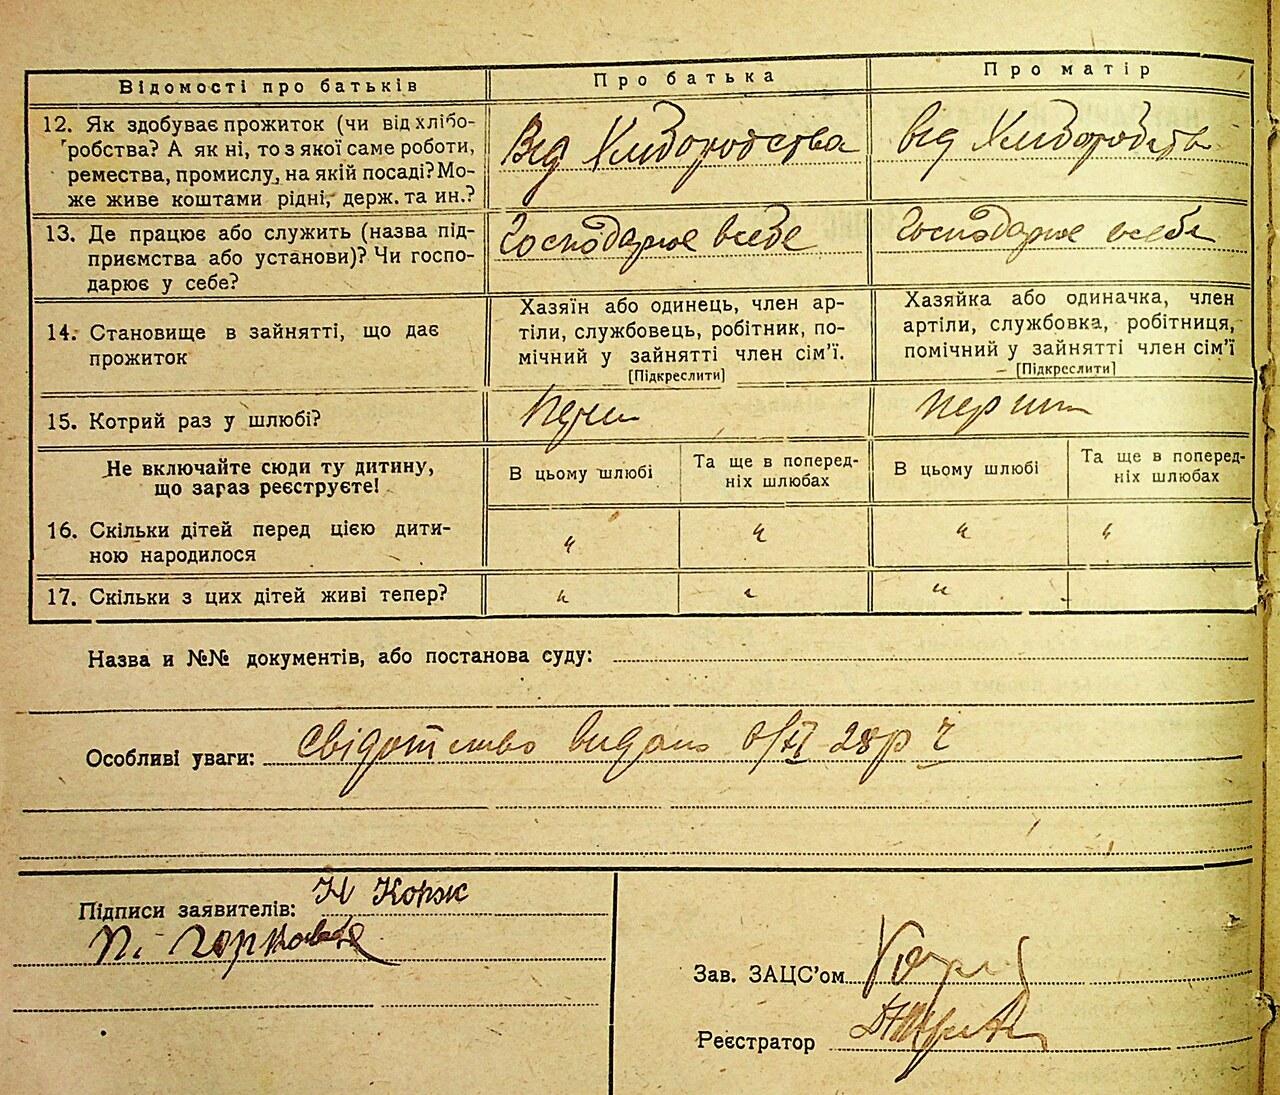 Відомості про батьків
Про батька
Про матір
12. Як здобуває прожиток (чи від хлібо-
робства? А як ні, то з якої саме роботи,
ремества, промислу, на якій посаді? Мо-
же живе коштами рідні, держ. та ин.?
Від Хліборобства
від Хліборобства
13. Де працює або служить (назва під-
приємства або установи)? Чи госпо-
дарює у себе?
Господарює всебе
Господарює всебе
14. Становище в зайнятті, що дає
прожиток
Хазяїн або одинець, член ар-
тіли, службовець, робітник, по-
мічний у зайнятті член сім'ї.
[Підкреслити]
Хазяйка або одиначка, член
артіли, службовка, робітниця,
помічний у зайнятті член сім'ї
[Підкреслити]
15. Котрий раз у шлюбі?
перший
Не включайте сюди ту дитину,
що зараз реєструєте!
В цьому шлюбі
Та ще в поперед-
ніх шлюбах
В цьому шлюбі
Та ще в поперед-
ніх шлюбах
16. Скільки дітей перед цією дити-
ною народилося
" " " "
17. Скільки з цих дітей живі тепер?
" " "
Назва и №№ документів, або постанова суду:
Особливі уваги: Свідотство видано 6/XI 28р
Підписи заявителів: Н Корж
П.
Зав. ЗАЦС'ом
Реєстратор